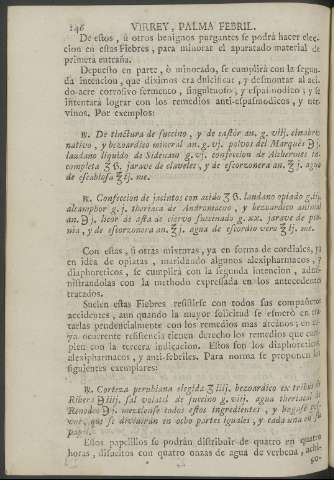 146 VIRREY, PALMA FEBRIL.
De estos, ù otros benignos purgantes se podrá hacer elec-
cion en estas Fiebres, para minorar el aparatado material de
primera entraña.
Depuesto en parte, ò minorado, se cumplirá con la segun-
da intencion, que diximos era dulcificar, y desmontar al aci-
do-acre corrosivo fermento, singultuoso, y espasmodico; y se
intentará lograr con los remedios anti-espasmodicos, y ner-
vinos. Por exemplos:
℞. De tinctura de succino, y de castòr an. g. viij. cinabrio
nativo, y bezoardico mineral an. g. vj. polvos del Marquès ℈j.
laudano liquido de Sidenam g. vj. confeccion de Alchermes in-
completa ʒß. jarave de claveles, y de escorzonera an. ℥j. agua
de escabiosa ℥ij. me.
℞. Confeccion de jacintos con acido ʒß. laudano opiado g.ij.
alcamphor g. j. theriaca de Andromaco, y bezoardico animal
an. ℈j. licor de asta de ciervo succinado g. xx. jarave de peo-
nia, y de escorzonera an. ℥j. agua de escordio vera ℥ij. me.
Con estas, ù otras mixturas, ya en forma de cordiales, ya
en idéa de opiatas, maridando algunos alexipharmacos, y
diaphoreticos, se cumplirá con la segunda intencion, admi-
nistrandolas con la methodo expresada en los antecedentes
tratados.
Suelen estas Fiebres resistirse con todos sus compañeros
accidentes, aun quando la mayor solicitud se esmerò en tra-
tarlas prudencialmente con los remedios mas arcanos; en cu-
ya ocurrente resistencia tienen derecho los remedios que cum-
plen con la tercera indicacion. Estos son los diaphoreticos,
alexipharmacos, y anti-febriles. Para norma se proponen los
siguientes exemplares:
℞. Corteza perubiana elegida ʒiiij. bezoardico ex tribus de
Ribera ℈iiij. sal volatil de succino g. viij. agua theriacal de
Renodeo ℈j. mezclense todos estos ingredientes, y hagase pol-
vos, que se dividirán en ocho partes iguales, y cada una en su
papel.
Estos papelillos se podrán distribuir de quatro en quatro
horas, disueltos con quatro onzas de agua de verbena, achi-
co-